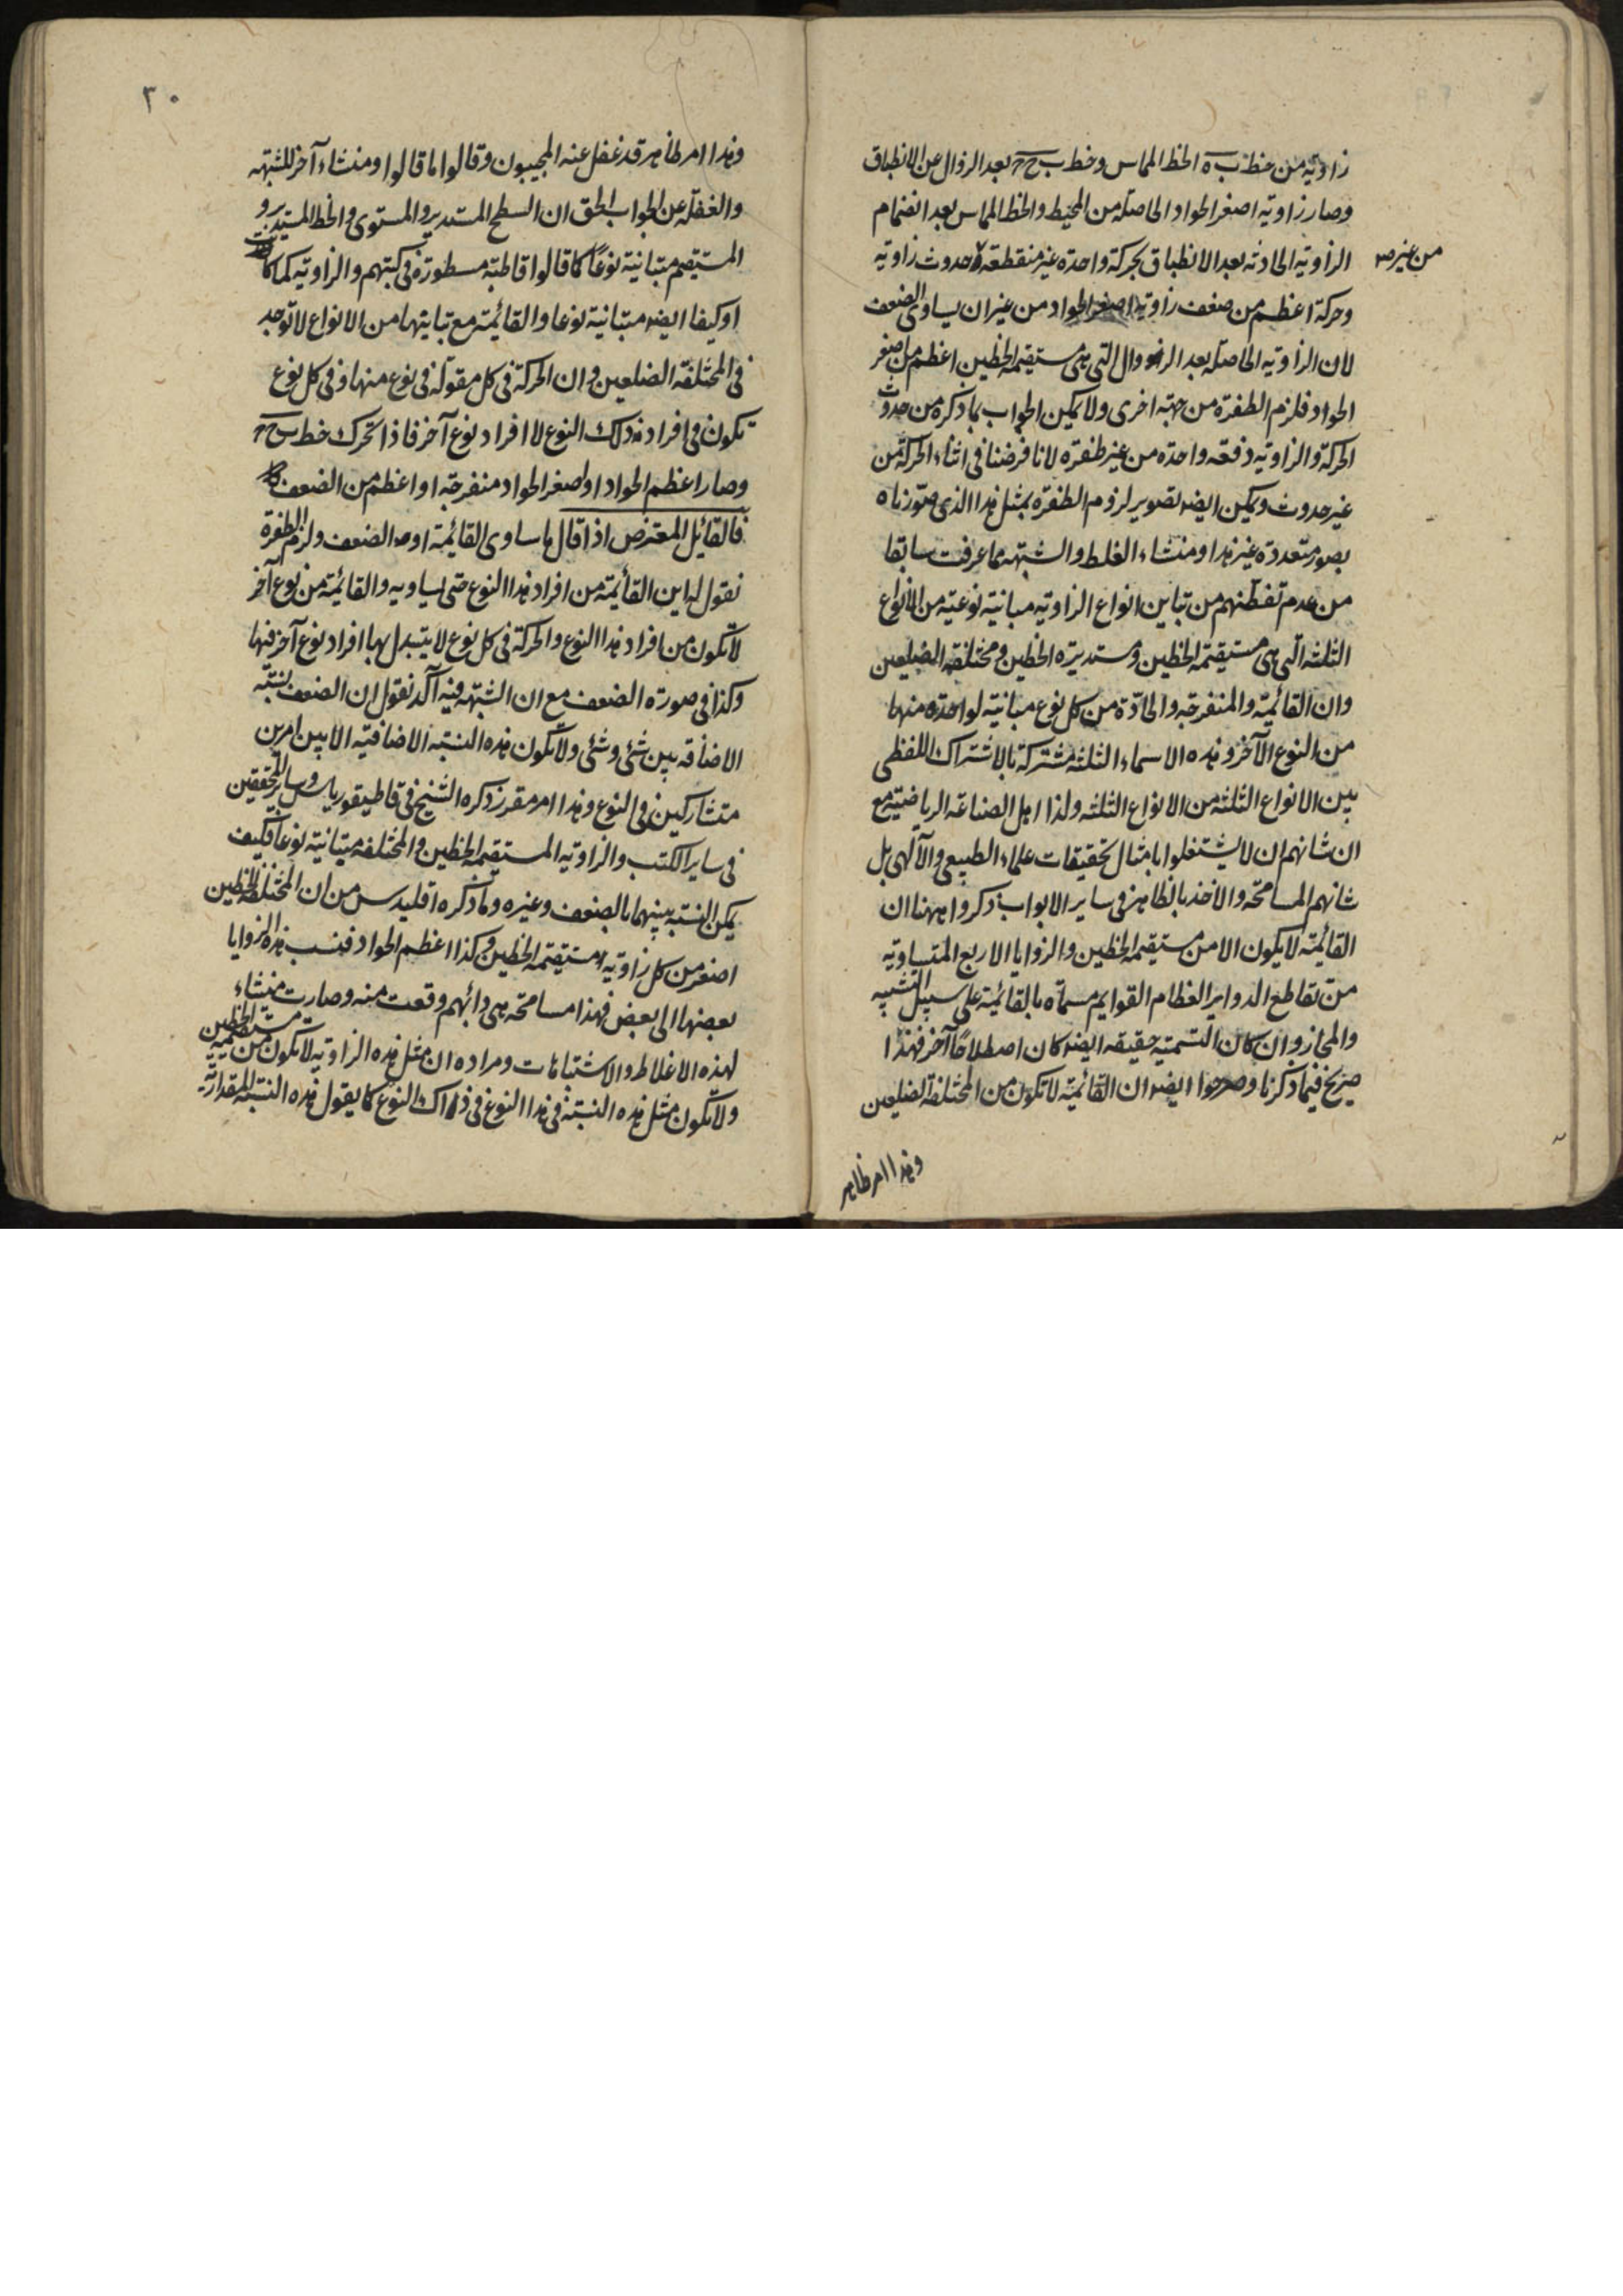 زاوية من خط ب ه الخط المماس وخط ب ح ر بعد الزوال عن الانطباق
وصار زاوية اصغر الحواد الحاصلة من المحيط والخط المماس بعد انضمام
الزاوية الحادثه بعد الانطباق بحركة واحدة غير منقطعة لا حدوث زاوية
من غير
وحركة اعظم من ضعف زاوية اصغر الحواد من غير ان يساوى الضعف
لان الزاوية الحاصلة بعد الزوال التى هى مستقيمة الخطين اعظم من اصغر
الحواد فلزم الطفرة من جهة اخرى ولا يمكن الجواب بما ذكره من حدوث
الحركة والزاوية دفعة واحدة من غير طفرة لانا فرضنا فى اثناء الحركة من
غير حدوث ويمكن ايضا تصوير لزوم الطفرة بمثل هذا الذى صورناه
بصور متعددة غير هذا ومنشاء الغلط والشبهه ما عرفت سابقا
من عدم تفطنهم من تباين انواع الزاوية مباينة نوعية من الانواع
الثلثه التى هى مستقيمة الخطين ومستديرة الخطين ومختلفة الضلعين
وان القائمة والمنفرجه والحادة من كل نوع مباينة لواحدة منها
من النوع الآخر وهذه الاسماء الثلثه مشتركة بالاشتراك اللفظى
بين الانواع الثلثه من الانواع الثلثه ولذا اهل الصناعة الرياضية مع
ان شانهم ان لا يشتغلوا بامثال تحقيقات علماء الطبيعى والآلهى بل
شانهم المسامحة والاخذ بالظاهر فى ساير الابواب ذكروا ههنا ان
القائمة لا يكون الا من مستقيمة الخطين والزوايا الاربع المتساوية
من تقاطع الدواير العظام القوايم مسماة بالقائمة على سبيل التشبيه
والمجاز وان كان التسمية حقيقة ايضا كان اصطلاحا آخر فهذا
صريح فيما ذكرنا وصرحوا ايضا ان القائمة لا تكون من المختلفة الضلعين
وهذا امر ظاهر
٣٠
وهذا امر ظاهر قد غفل عنه المجيبون وقالوا ما قالوا ومنشاء آخر للشبهه
والغفلة عن الجواب الحق ان السطح المستدير والمستوى والخط المستدير و
المستقيم متباينة نوعا كما قالوا قاطبة مسطورة فى كتبهم والزاوية كما كانت
او كيفا ايضا متباينة نوعا والقائمة مع تباينها من الانواع لا توجد
فى المختلفة الضلعين وان الحركة فى كل مقولة فى نوع منها وفى كل نوع
تكون فى افراد ذلك النوع لا افراد نوع آخر فاذا تحرك خط ب ح ر
وصار اعظم الحواد او اصغر الحواد منفرجة او اعظم من الضعف
فالقائل المعترض اذا قال ما ساوى القائمة او الضعف ولزم الطفرة
نقول له اين القائمة من افراد هذا النوع حتى يساويه والقائمة من نوع آخر
لا تكون من افراد هذا النوع والحركة فى كل نوع لا يتبدل بها افراد نوع آخر فيها
وكذا فى صورة الضعف مع ان الشبهه فيه آكد نقول ان الضعف نسبة
الاضافة بين شئى وشئى ولا تكون هذه النسبة الاضافية الا بين امرين
متشاركين فى النوع وهذا امر مقرر ذكره الشيخ فى قاطيقورياس وساير المحققين
فى ساير الكتب والزاوية المستقيمة الخطين والمختلفة متباينة نوعا فكيف
يمكن النسبة بينهما بالضعف وغيره وما ذكره اقليدس من ان المختلفة الخطين
اصغر من كل زاوية مستقيمة الخطين وكذا اعظم الحواد فنسب هذه الزوايا
بعضها الى بعض فهذا مسامحة هى دائهم وقعت منه وصارت منشاء
لهذه الاغلاط والاشتباهات ومراده ان مثل هذه الزاوية لا تكون من مستقيمة الخطين
ولا تكون مثل هذه النسبة فى هذا النوع فى ذاك النوع كما يقول هذه النسبة المقدارية